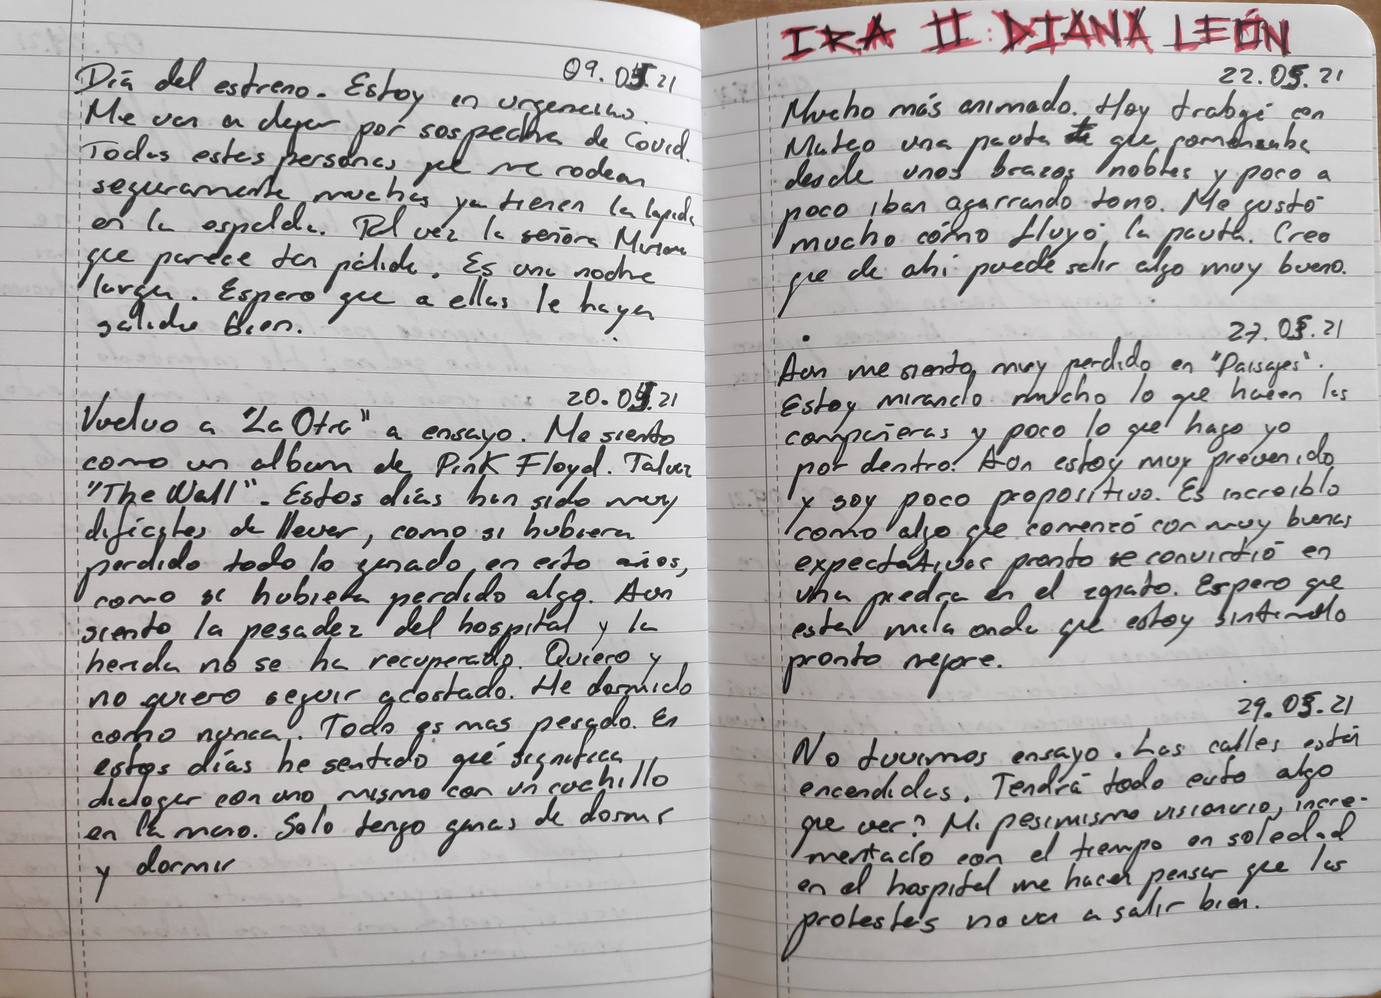 09.05.21
Día del estreno. Estoy en urgencias.
Me van a dejar por sospecha de Covid.
Todas estas personas que me rodean
seguramente muchas ya tienen la lapida
en la espalda. Tal vez la señora Mariana
que parece tan pálida. Es una noche
larga. Espero que a ellas le haya
salido bien.
20.05.21
Vuelvo a "La Otra" a ensayo. Me siento
como un album de Pink Floyd. Talvez
"The Wall". Estos días han sido muy
dificiles de llevar, como si hubiera
perdido todo lo ganado en esto años,
como si hubiera perdido algo. Aun
siento la pesadez del hospital y la
herida no se ha recuperado. Quiero y
no quiero seguir acostado. He dormido
como nunca. Todo es mas pesado. En
estos días he sentido qué significa
dialogar con uno mismo con un cuchillo
en la mano. Solo tengo ganas de dormir
y dormir
IRA II: DIANA LEÓN
22.05.21
Mucho más animado. Hoy trabajé con
Mateo una pauta que comenzaba
desde unos brazos nobles y poco a
poco iban agarrando tono. Me gustó
mucho cómo fluyó la pauta. Creo
que de ahí puede salir algo muy bueno.
27.05.21
Aun me siento muy perdido en "Paisajes".
Estoy mirando mucho lo que hacen las
compañeras y poco lo que hago yo
por dentro. Aon estoy muy prevenido
y soy poco propositivo. Es increíble
como algo que comenzó con muy buenas
expectativas pronto se convirtió en
una piedra en el zapato. Espero que
esta mala onda que estoy sintiendo
pronto mejore.
29.05.21
No tuvimos ensayo. Las calles están
encendidas. Tendrá todo esto algo
que ver? Mi pesimismo visionario, incre-
mentado con el tiempo en soledad
en el hospital me hacen pensar que las
protestas no van a salir bien.